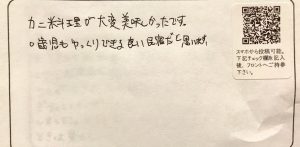 カニ料理が大変美味しかったです。
0歳児もゆっくりできる良い民宿だと思います。
スマホから投稿可能。
下記チェック欄を記入
後、フロントへご持参
下さい。